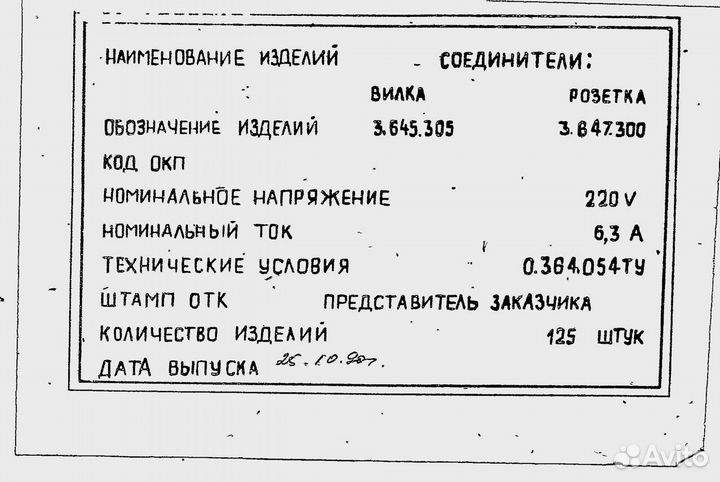 НАИМЕНОВАНИЕ ИЗДЕЛИЙ СОЕДИНИТЕЛИ:
ВИЛКА РОЗЕТКА
ОБОЗНАЧЕНИЕ ИЗДЕЛИЙ 3.645.305 3.647.300
КОД ОКП
НОМИНАЛЬНОЕ НАПРЯЖЕНИЕ 220 V
НОМИНАЛЬНЫЙ ТОК 6,3 А
ТЕХНИЧЕСКИЕ УСЛОВИЯ 0.364.054ТУ
ШТАМП ОТК ПРЕДСТАВИТЕЛЬ ЗАКАЗЧИКА
КОЛИЧЕСТВО ИЗДЕЛИЙ 125 ШТУК
ДАТА ВЫПУСКА 25.10.90г.
Avito